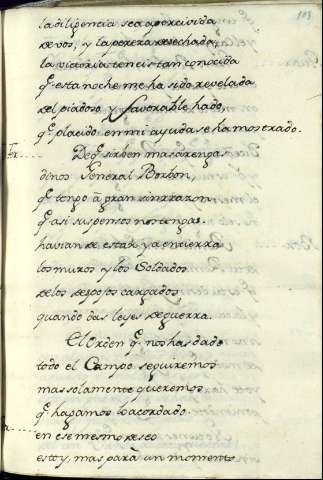 la diligencia sea apercivida
de vos, y la pereza desechada,
la victoria teneis tan conocida
q.e esta noche me ha sido revelada
del piadoso y favorable hado,
q.e placido en mi ayuda se ha mostrado.
De q.e sirben mas arengas
dinos General Borbon,
q.e tengo á gran sinrrazon
q.e asi suspensos nos tengas.
havian de estar ya en tierra
los muros y los Soldados
de los despojos cargados
quando das leyes de guerra.
El Orden q.e nos has dado
todo el Campo seguiremos
mas solamente queremos
q.e hagamos lo acordado.
en ese mismo deseo
estoy, mas pará un momento